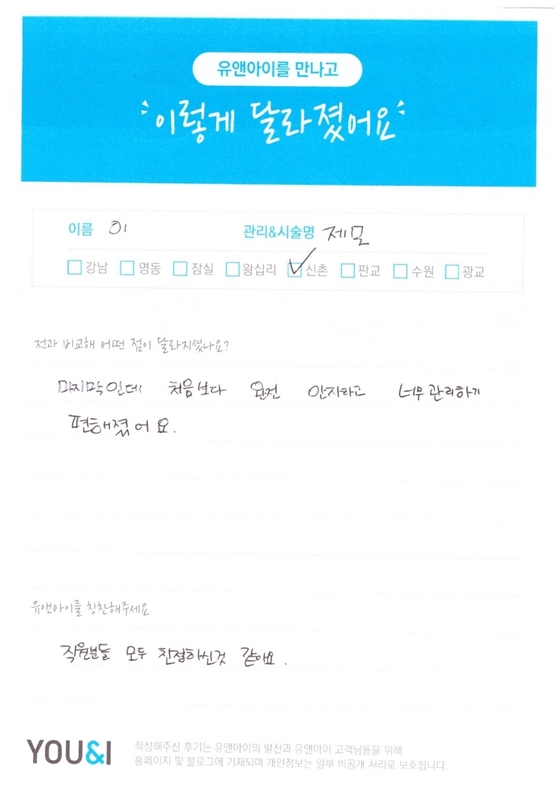 유앤아이를 만나고
이렇게 달라졌어요
이름 이 관리&시술명 제모
강남 명동 잠실 왕십리 신촌 판교 수원 광교
전과 비교해 어떤 점이 달라지셨나요?
마지막인데 처음보다 완전 안자라고 너무 관리하기
편해졌어요.
유앤아이를 칭찬해주세요
직원분들 모두 친절하신것 같아요.
YOU&I 작성해주신 후기는 유앤아이의 발전과 유앤아이 고객님들을 위해
홈페이지 및 블로그에 기재되며 개인정보는 일부 비공개 처리로 보호됩니다.